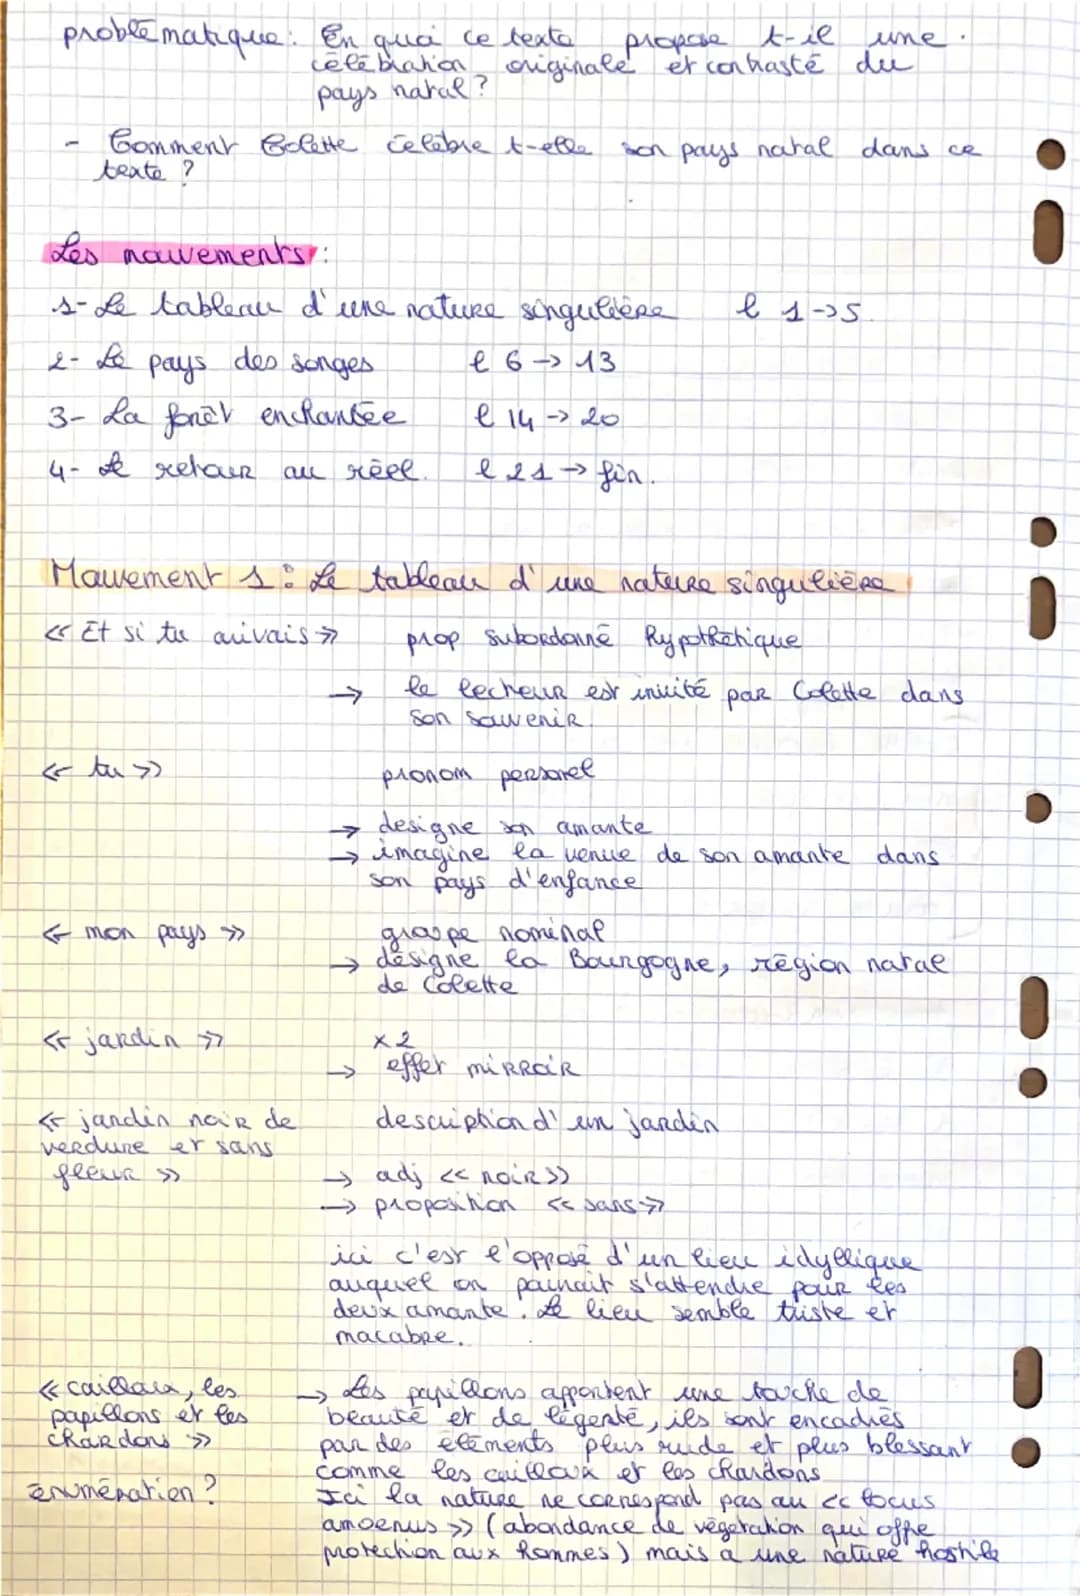 problématique: En quoi ce texte propose t-il une
célébration originale et contrasté du
pays natal?
- Comment Colette célèbre t-elle son pays natal dans ce
texte ?
Les mouvements:
1- Le tableau d'une nature singulière l 1->5
2- Le pays des songes l 6 -> 13
3- La forêt enchantée l 14 -> 20
4- Le retour au réel. l 21 -> fin.
Mouvement 1: Le tableau d'une nature singulière
<< Et si tu arivais >> prop subordonné hypothétique
-> le lecteur est invité par Colette dans
son souvenir.
<< tu >> pronom personel
-> designe son amante
-> imagine la venue de son amante dans
son pays d'enfance
<< mon pays >> groupe nominal
-> désigne la Bourgogne, région natal
de Colette
<< jardin >> x2
-> effet mirroir
<< jardin noir de description d'un jardin
verdure et sans
fleur >> -> adj << noir >>
-> proposition << sans >>
ici c'est l'opposé d'un lieu idyllique
auquel on pourrait s'attendre pour les
deux amante. Le lieu semble triste et
macabre.
<< cailloux, les -> Les papillons apportent une touche de
papillons et les beauté et de légerté, ils sont encadrés
chardons >> par des éléments plus rude et plus blessant
comme les cailloux et les chardons
énumération ? Ici la nature ne correspond pas au << locus
amoenus >> (abondance de végétation qui offre
protection aux hommes) mais a une nature hostile